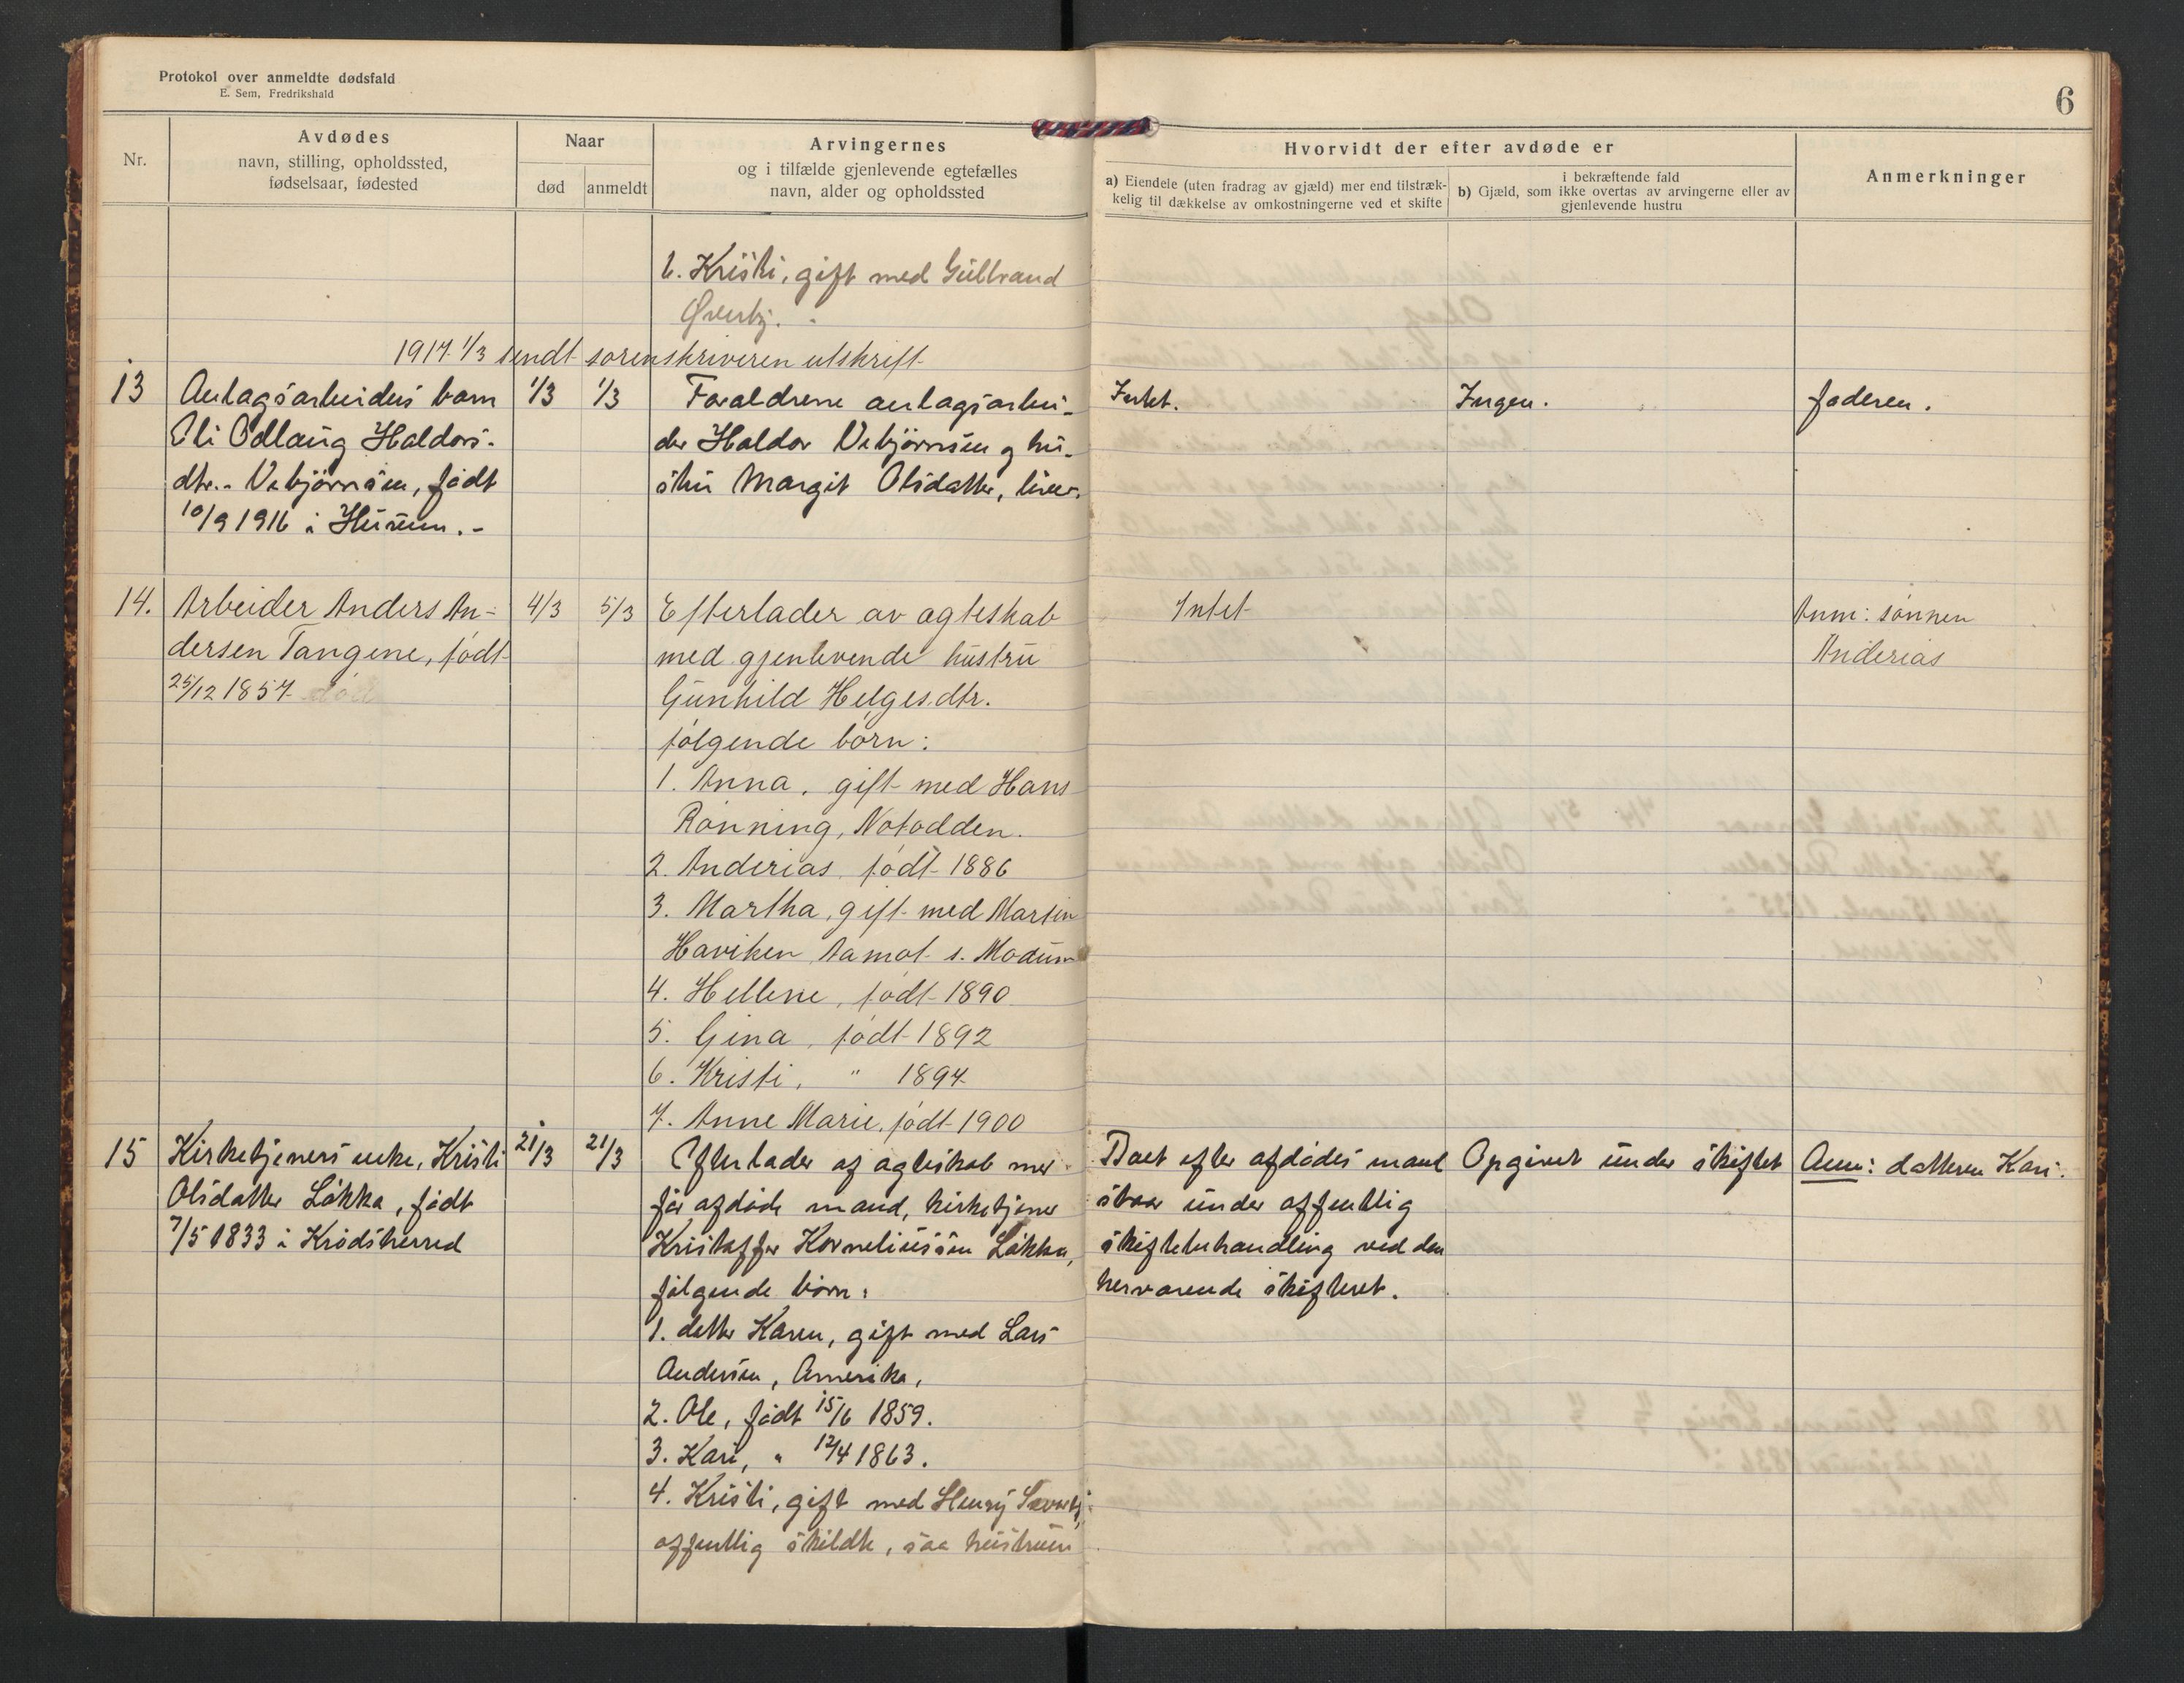 Protokol over anmeldte dødsfald
E. Sem, Fredrikshald
6
Nr.
Avdødes
navn, stilling, opholdssted,
fødselsaar, fødested
Naar
død
anmeldt
Arvingernes
og i tilfælde gjenlevende egtefælles
navn, alder og opholdssted
Hvorvidt der efter avdøde er
a) Eiendele (uten fradrag av gjæld) mer end tilstræk-
kelig til dækkelse av omkostningerne ved et skifte
i bekræftende fald
b) Gjæld, som ikke overtas av arvingerne eller av
gjenlevende hustru
Anmerkninger
6. Kristi, gift med Gulbrand
Øverby.
1917 1/3 sendt sorenskriveren utskrift
13
Anlagsarbeiders barn
Eli Odlaug Haldors-
dtr. Vebjørnsen, født
10/9 1916 i Hurum.-
1/3
1/3
Forældrene anlagsarbei-
der Haldor Vebjørnsen og hu-
stru Margit Olsdatter, lever.
Intet.
Ingen.
faderen.
14.
Arbeider Anders An-
dersen Tangene, født
25/12 1857
4/3
5/3
Efterlader av ægteskab
med gjenlevende hustru
Gunhild Helgesdtr.
følgende børn:
1. Anna, gift med Hans
Rønning, Notodden.
2. Anderias, født 1886
3. Martha, gift med Martin
Haviken Aamot s. Modum
4. Hellene, født 1890
5. Gina, født 1892
6. Kristi, " 1894
7. Anne Marie, født 1900
Intet
Anm: sønnen
Anderias
15
Kirketjeners enke, Kristi
Olsdatter Løkka, født
7/5 1833 i Krødsherred
21/3
21/3
Efterlader af ægteskab med
før afdøde mand, kirketjener
Kristoffer Korneliussen Løkka,
følgende børn:
1. datter Karen, gift med Lars
Andersen, Amerika,
2. Ole, født 15/6 1859.
3. Kari, " 12/4 1863.
4. Kristi, gift med Henry
offentlig skildte, saa hustruen
Boet efter afdødes mand
staar under offentlig
skiftebehandling ved den
herværende skifteret.
Opgivet under skiftet
Anm: datteren Kari.